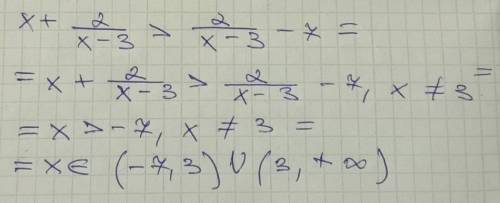 x + 2/(x-3) > 2/(x-3) - 7 =
= x + 2/(x-3) > 2/(x-3) - 7, x ≠ 3 =
= x > -7, x ≠ 3 =
= x ∈ (-7, 3) ∪ (3, +∞)